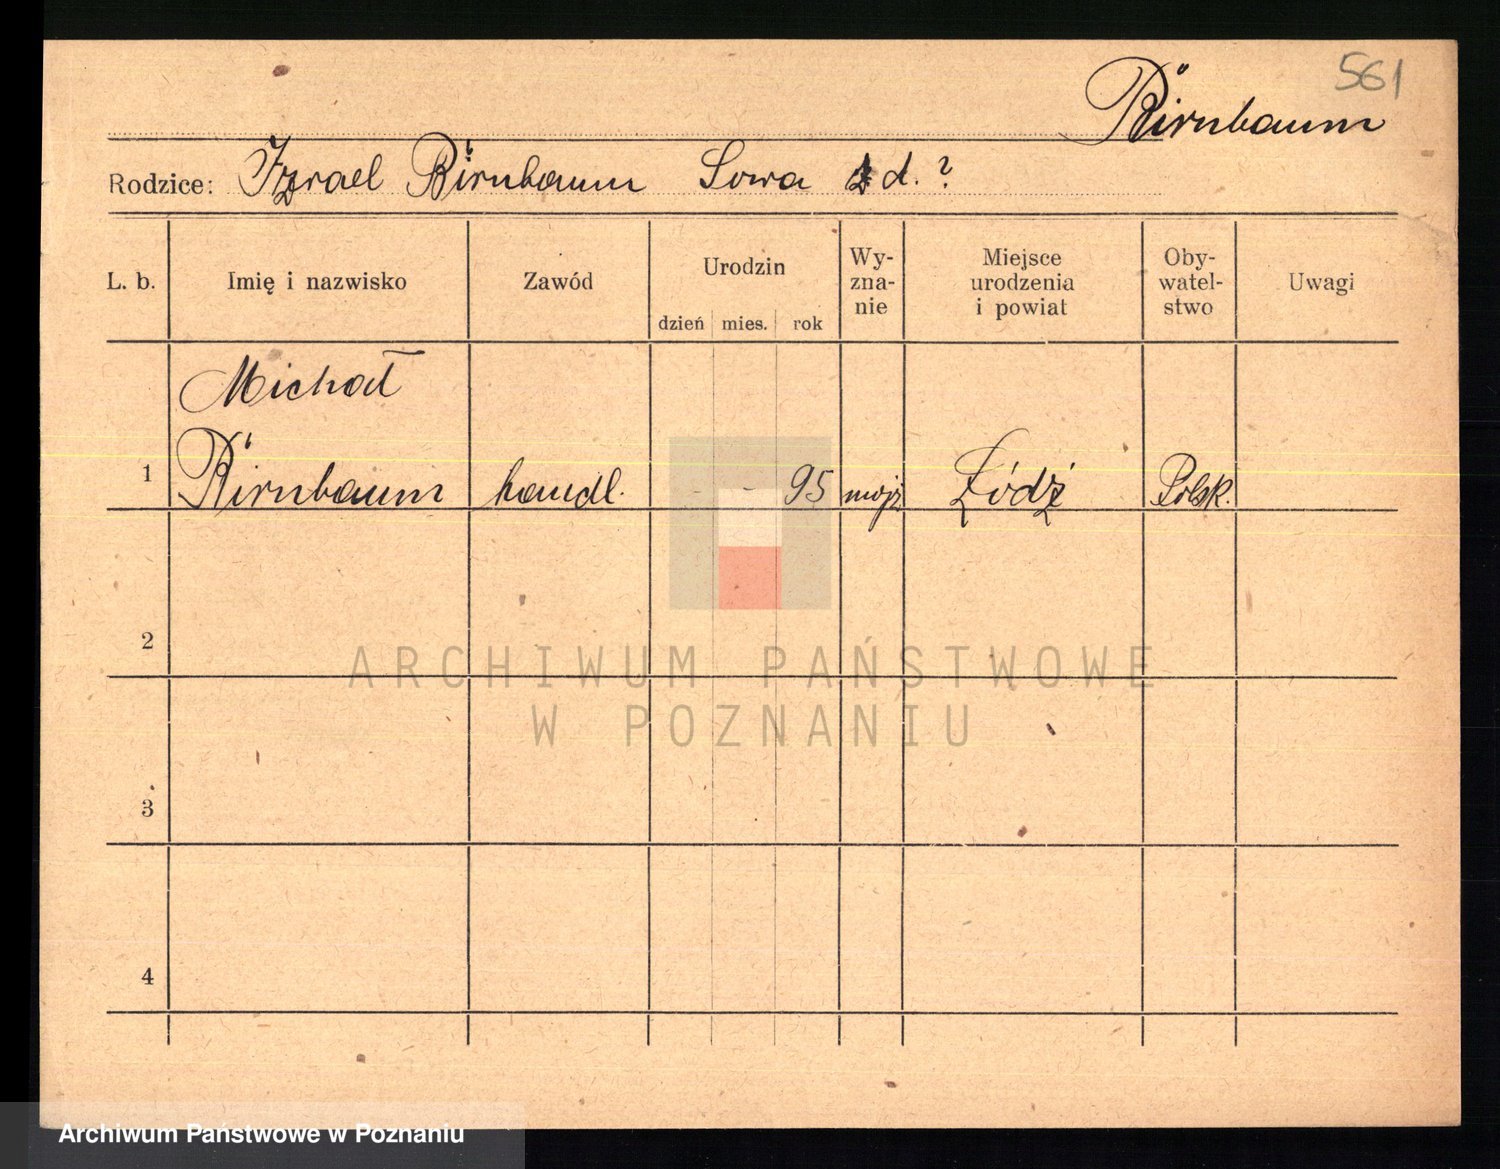 561
Birnbaum
Rodzice: Izrael Birnbaum Sowa z d. ?
L. b.
Imię i nazwisko
Zawód
Urodzin
dzień mies. rok
Wy-
zna-
nie
Miejsce
urodzenia
i powiat
Oby-
watel-
stwo
Uwagi
Michał
1 Birnbaum handl. - - 95 mojż Łódź Polsk.
2
3
4
ARCHIWUM PAŃSTWOWE
W POZNANIU
Archiwum Państwowe w Poznaniu